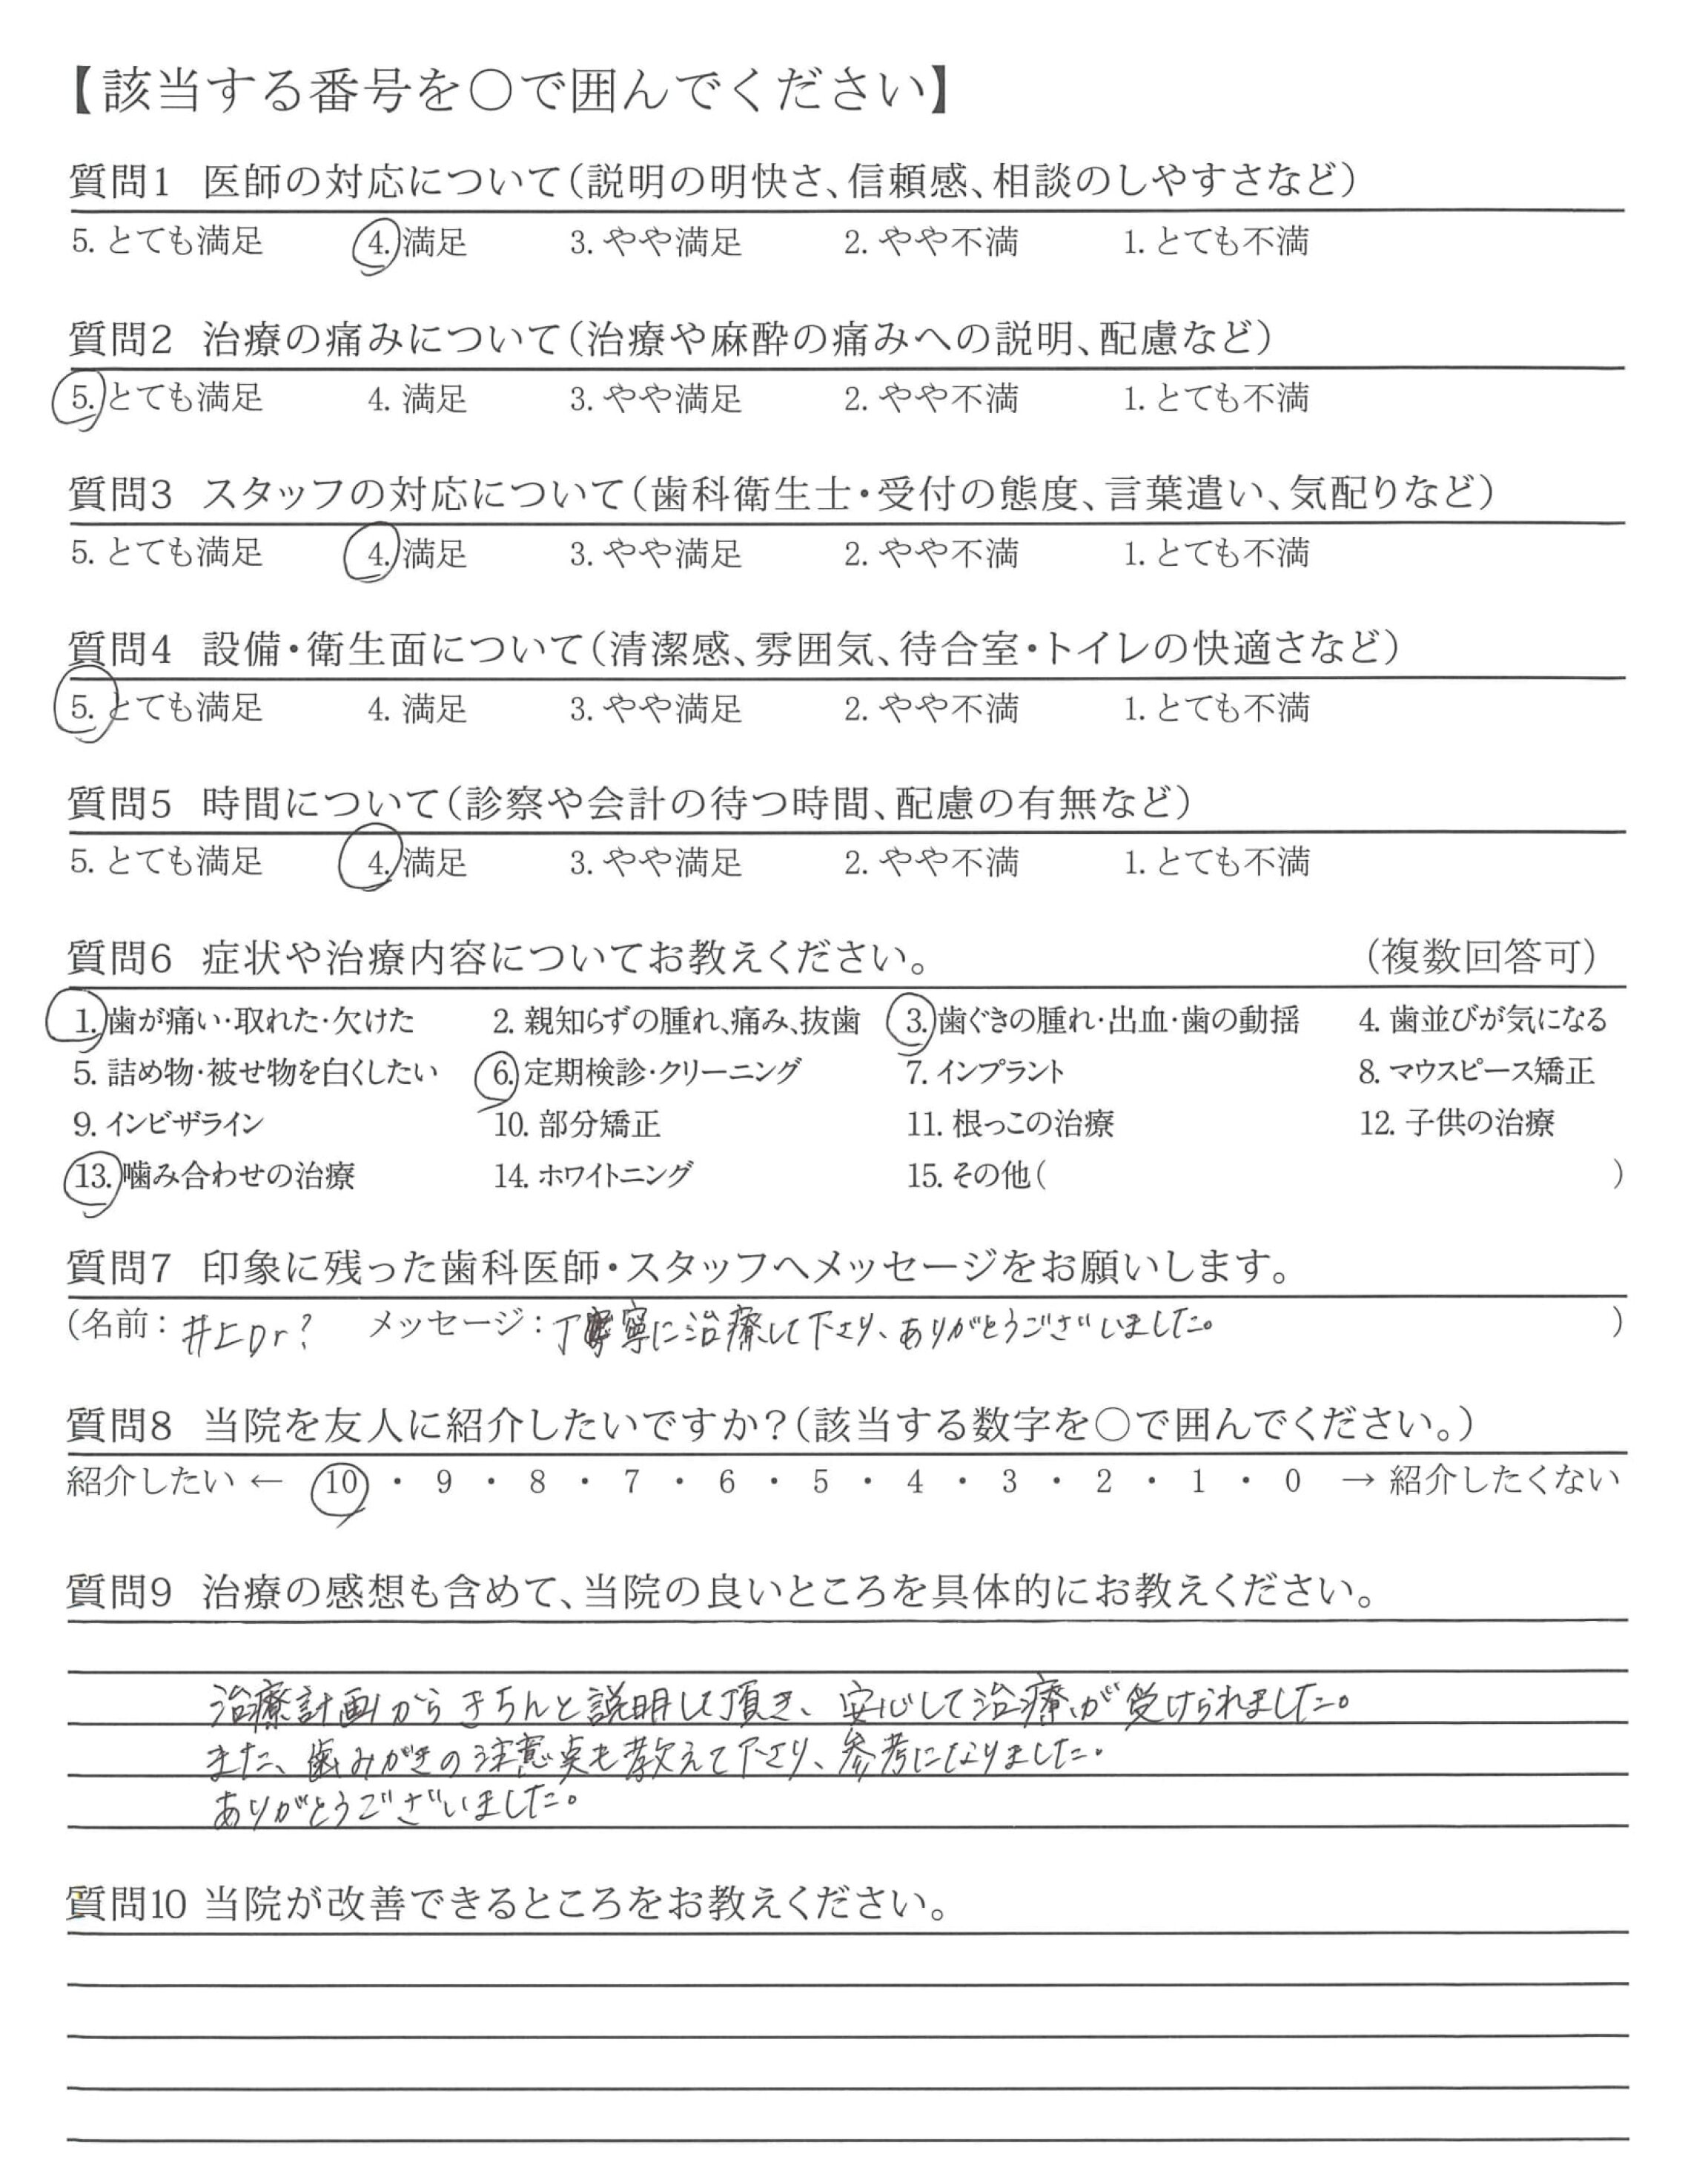 【該当する番号を○で囲んでください】
質問1 医師の対応について(説明の明快さ、信頼感、相談のしやすさなど)
5. とても満足 4. 満足 3. やや満足 2. やや不満 1. とても不満
質問2 治療の痛みについて(治療や麻酔の痛みへの説明、配慮など)
5. とても満足 4. 満足 3. やや満足 2. やや不満 1. とても不満
質問3 スタッフの対応について(歯科衛生士・受付の態度、言葉遣い、気配りなど)
5. とても満足 4. 満足 3. やや満足 2. やや不満 1. とても不満
質問4 設備・衛生面について(清潔感、雰囲気、待合室・トイレの快適さなど)
5. とても満足 4. 満足 3. やや満足 2. やや不満 1. とても不満
質問5 時間について(診察や会計の待つ時間、配慮の有無など)
5. とても満足 4. 満足 3. やや満足 2. やや不満 1. とても不満
質問6 症状や治療内容についてお教えください。 (複数回答可)
1. 歯が痛い・取れた・欠けた 2. 親知らずの腫れ、痛み、抜歯 3. 歯ぐきの腫れ・出血・歯の動揺 4. 歯並びが気になる
5. 詰め物・被せ物を白くしたい 6. 定期検診・クリーニング 7. インプラント 8. マウスピース矯正
9. インビザライン 10. 部分矯正 11. 根っこの治療 12. 子供の治療
13. 噛み合わせの治療 14. ホワイトニング 15. その他( )
質問7 印象に残った歯科医師・スタッフへメッセージをお願いします。
(名前: 井上Dr? メッセージ: 丁寧に治療して下さり、ありがとうございました。 )
質問8 当院を友人に紹介したいですか?(該当する数字を○で囲んでください。)
紹介したい ← 10 ・ 9 ・ 8 ・ 7 ・ 6 ・ 5 ・ 4 ・ 3 ・ 2 ・ 1 ・ 0 → 紹介したくない
質問9 治療の感想も含めて、当院の良いところを具体的にお教えください。
治療計画からきちんと説明して頂き、安心して治療が受けられました。
また、歯みがきの注意点も教えて下さり、参考になりました。
ありがとうございました。
質問10 当院が改善できるところをお教えください。